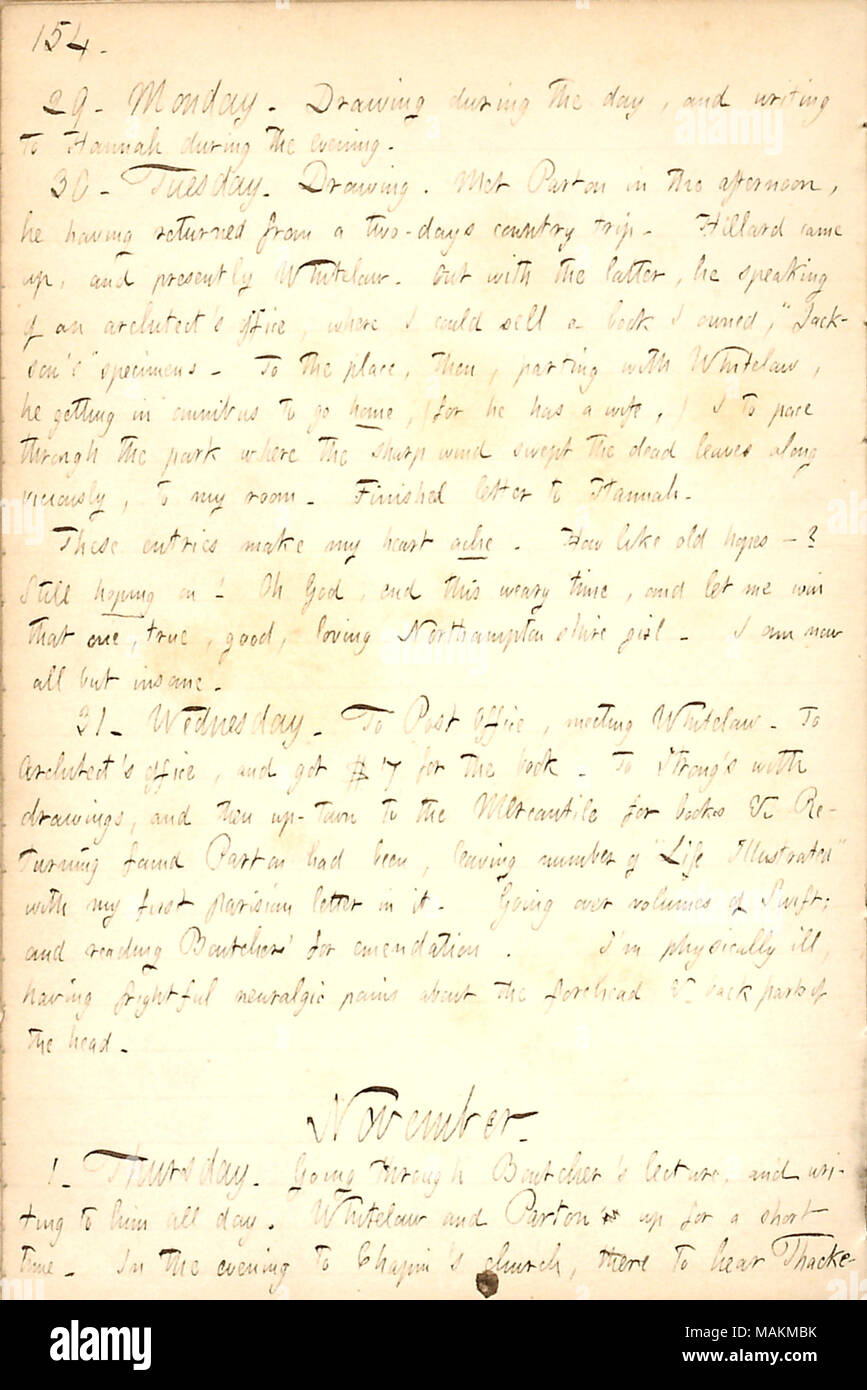 154.
29. Monday. Drawing during the day, and writing
to Hannah during the evening.
30. Tuesday. Drawing. Met Parton in the afternoon,
he having returned from a two-days country trip. Hillard came
up, and presently Whitelaw. Out with the latter, he speaking
of an architect's office, where I could sell a book I owned, "Jack-
son's" specimens. To the place, then, parting with Whitelaw,
he getting in omnibus to go home, (for he has a wife,) I to pace
through the park where the sharp wind swept the dead leaves along
viciously, to my room. Finished letter to Hannah.
These entries make my heart ache. How like old hopes —?
Still hoping on! Oh God, end this weary time, and let me win
that one, true, good, loving Northamptonshire girl. I am now
all but insane.
31. Wednesday. To Post Office, meeting Whitelaw. To
Architect's office, and got $7 for the book. To Strong's with
drawings, and then up-town to the Mercantile for books &c. Re-
turning found Parton had been, leaving number of "Life Illustrated"
with my first parisian letter in it. Going over volumes of Swift;
and reading Boutcher's for emendation. I'm physically ill,
having frightful neuralgic pains about the forehead & back part of
the head.
November.
1. Thursday. Going through Boutcher's lecture, and wri-
ting to him all day. Whitelaw and Parton up for a short
time. In the evening to Chapin's church, there to hear Thacke-
alamy
alamy
Image ID: MAKMBK
www.alamy.com